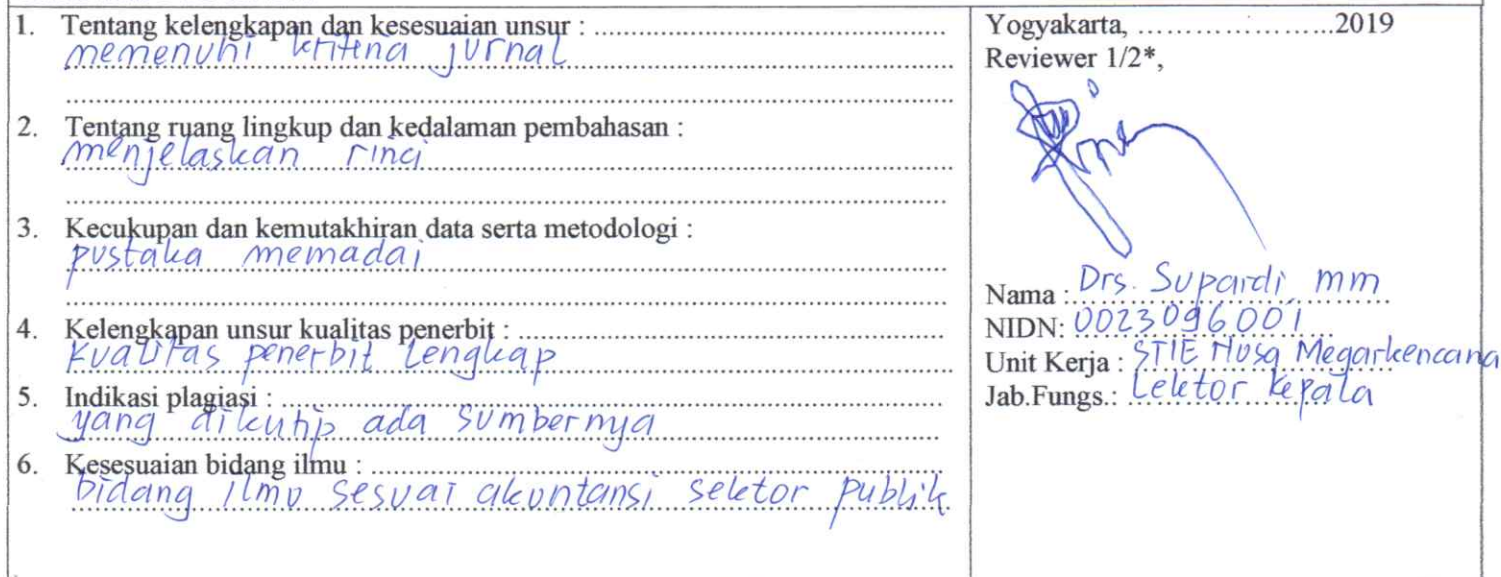 1. Tentang kelengkapan dan kesesuaian unsur : ..........
memenuhi kriteria jurnal
2. Tentang ruang lingkup dan kedalaman pembahasan :
menjelaskan rinci
3. Kecukupan dan kemutakhiran data serta metodologi :
pustaka memadai
4. Kelengkapan unsur kualitas penerbit : ..........
kualitas penerbit lengkap
5. Indikasi plagiasi : ..........
yang dikutip ada sumbernya
6. Kesesuaian bidang ilmu : ..........
bidang ilmu sesuai akuntansi sektor publik
Yogyakarta, ....................2019
Reviewer 1/2*,
Nama : Drs. Supardi, mm
NIDN: 0023096001
Unit Kerja : STIE Nusa Megarkencana
Jab.Fungs.: Lektor kepala